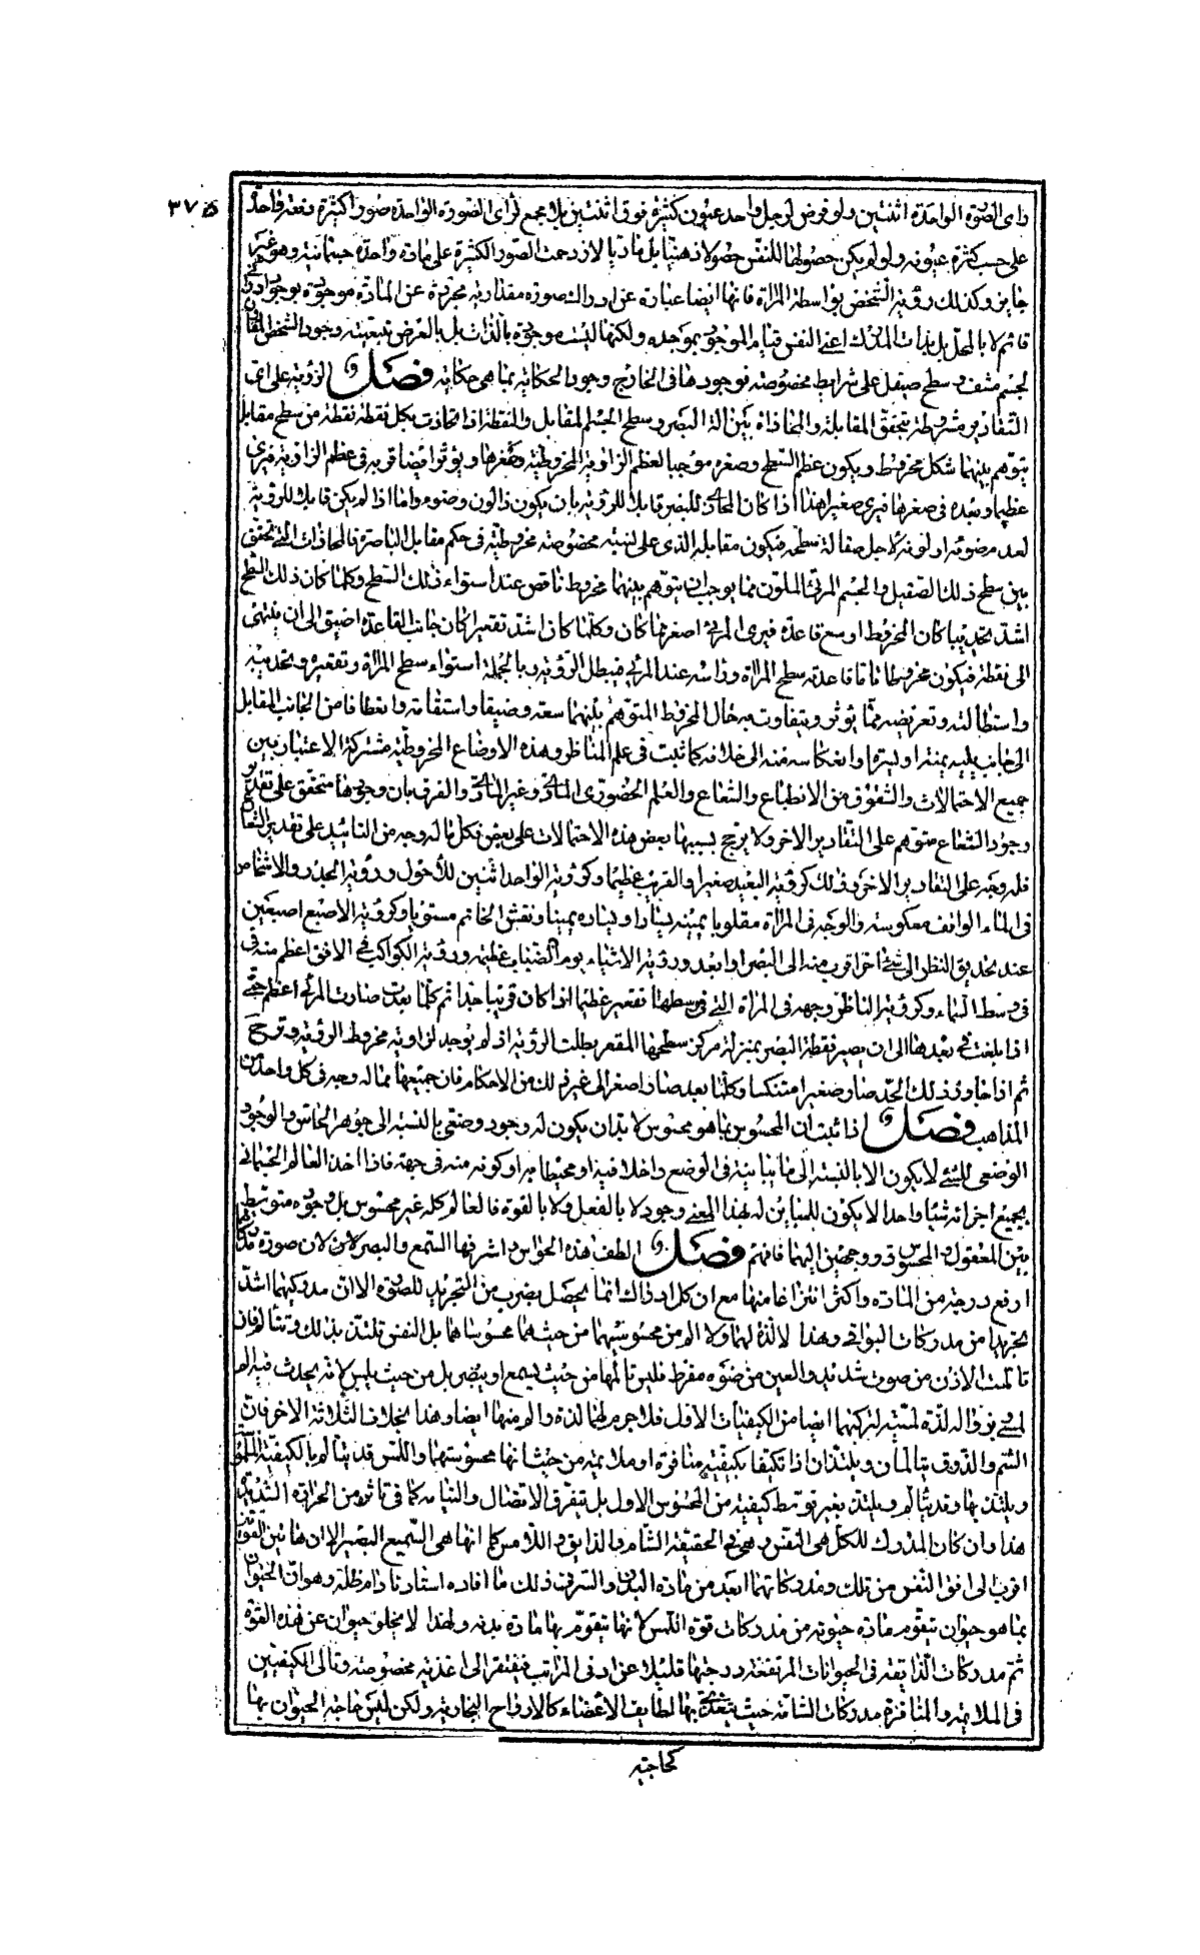 رأى الصورة الواحدة اثنتين ولو فرض لرجل واحد عيون كثيرة فوق اثنتين بلا مجمع لرأى الصورة الواحدة صورا كثيرة دفعة واحدة
٣٧
على حسب كثرة عيونه ولو لم يكن حصولها للنفس حصولا ذهنيا بل ماديا لازدحمت الصور الكثيرة على مادة واحدة جسمانية وهو غير
جايز وكذلك رؤية الشخص بواسطة المرآة فانها ايضا عبارة عن ادراك صورة مقدارية مجردة عن المادة موجودة بوجود ادراكي
قائم لا بالمحل بل بذات المدرك اعنى النفس قيام الموجود بموجده ولكنها ليست موجودة بالذات بل بالعرض بتبعية وجود الشخص المقابل
لجسم مشف وسطح صيقل على شرايط مخصوصة فوجودها فى الخارج وجود الحكاية بما هى حكاية فصل الرؤية على اى
التقادير مشروطة بتحقق المقابلة والمحاذاة بين آلة البصر وسطح الجسم المقابل والنقطة اذا تحاذت بكل نقطة نقطة من سطح مقابل
يتوهم بينهما شكل مخروط ويكون عظم السطح وصغره موجبا لعظم الزاوية المخروطية وصغرها ويؤثر ايضا قربه فى عظم الزاوية فيرى
عظيما وبعده فى صغرها فيرى صغيرا هذا اذا كان المحاذى للبصر قابلا للرؤية بان يكون ذا لون وضوء واما اذا لم يكن قابلا للرؤية
لعدم ضوئه او لونه لاجل صقالة سطحه فيكون مقابله الذى على نسبة مخصوصة مخروطية فى حكم مقابل الباصرة فالمحاذات التى تحقق
بين سطح ذلك الصقيل والجسم المرئى الملون مما يوجب ان يتوهم بينهما مخروط ناقص عند استواء ذلك السطح وكلما كان ذلك السطح
اشد تحديبا كان المخروط اوسع قاعدة فيرى المرئى اصغر مما كان وكلما كان اشد تقعيرا كان جانب القاعدة اضيق الى ان ينتهى
الى نقطة فيكون مخروطا تاما قاعدته سطح المرآة ورأسه عند المرئى فيبطل الرؤية وبالجملة استواء سطح المرآة وتقعيره وتحديبه
واستطالته وتعريضه مما يؤثر ويتفاوت به حال المخروط المتوهم بينهما سعة وضيقا واستقامة وانعطافا من الجانب المقابل
الى جانب يليه يمنة او يسرة او انعكاسه منه الى خلافه كما ثبت فى علم المناظر وهذه الاوضاع المخروطية مشتركة الاعتبار بين
جميع الاحتمالات والشقوق من الانطباع والشعاع والعلم الحضورى المادى وغير المادى والفرق بان وجودها متحقق على تقدير
وجود الشعاع متوهم على التقادير الاخر ولا يرجح بسببها بعض هذه الاحتمالات على بعض فكل ما له وجه من التأييد على تقدير الشعاع
فله وجه على التقادير الاخر وذلك كرؤية البعيد صغيرا والقريب عظيما وكرؤية الواحد اثنين للأحول ورؤية الجدر والاشخاص
فى الماء الواقف معكوسة والوجه فى المرآة مقلوبا يمينه يسارا ويساره يمينا ونقش الخاتم مستويا وكرؤية الاصبع اصبعين
عند تحديق النظر الى شىء آخر اقرب منه الى البصر او ابعد ورؤية الاشياء يوم الضباب عظيمة ورؤية الكواكب فى الافق اعظم منه فى
فى وسط السماء وكرؤية الناظر وجهه فى المرآة التى فى سطحها تقعير عظيما اذا كان قريبا جدا ثم كلما بعدت صارت المرئى اعظم حتى
اذا بلغت فى بعدها الى ان يصير نقطة البصر بمنزلة مركز سطحها المقعر بطلت الرؤية اذ لم يوجد لزاوية مخروط الرؤية وترح
ثم اذا جاوز ذلك الحد صار صغيرا متنكسا وكلما بعد صار اصغر الى غير ذلك من الاحكام فان جميعها مما له وجه فى كل واحد من
المذاهب فصل اذا ثبت ان المحسوس بما هو محسوس لا بد ان يكون له وجود وضعى بالنسبة الى جوهر الحاس والوجود
الوضعى للشىء لا يكون الا بالنسبة الى ما يباينه فى الوضع داخلا فيه او محيطا به او كونه منه فى جهة فاذا اخذ العالم الجسمانى
بجميع اجزائه شيئا واحدا لا يكون للمباين له بهذا المعنى وجود لا بالفعل ولا بالقوة فالعالم كله غير محسوس بل وجوده متوسط
بين المعقول والمحسوس ذو وجهين اليهما فافهم فصل الطف هذه الحواس واشرفها السمع والبصر لان صورة مدركهما
ارفع درجة من المادة واكثر انتزاعا منها مع ان كل ادراك انما يحصل بضرب من التجريد للصورة الا ان مدركيهما اشد
تجريدا من مدركات البواقى وهذا لا لذة لهما ولا الم من محسوسيهما من حيث هما محسوساهما بل النفس تلتذ بذلك وتتألم فان
تالمت الاذن من صوت شديد والعين من ضوء مفرط فليس تالمها من حيث يسمع او يبصر بل من حيث يلمس لانه يحدث فيه الم
لمسى بزواله لذة لمسية لتركبهما ايضا من الكيفيات الاول فلا جرم لهما لذة والم منها ايضا وهذا بخلاف الثلاثة الاخر فان
الشم والذوق يتالمان ويلتذان اذا تكيفا بكيفية منافرة او ملايمة من حيث انها محسوستهما واللمس قد يتألم بالكيفية الملموسة
ويلتذ بها وقد يتألم ويلتذ بغير توسط كيفية من المحسوس الاول بل بتفرق الاتصال والتيامه كما فى تاثره من الحرارة الشديدة
هذا وان كان المدرك للكل هى النفس وهى فى الحقيقة الشام والذايق واللامس كما انها هى السميع البصير الا ان هاتين القوتين
اقرب الى افق النفس من تلك ومدركاتهما ابعد من مادة البدن والسر فى ذلك ما افاده استادنا دام ظله وهو ان الحيوان
بما هو حيوان يتقوم مادة حيوته من مدركات قوة اللمس لانها يتقوم بها مادة بدنه ولهذا لا يخلو حيوان عن هذه القوة
ثم مدركات الذايقة فى الحيوانات المرتفعة درجتها قليلا عن ادنى المراتب فيفتقر الى اغذية مخصوصة وتالى الكيفيتين
فى الملايمة والمنافرة مدركات الشامة حيث يتغذى بها لطايف الاعضاء كالارواح البخارية ولكن ليس حاجة الحيوان بها
كحاجته